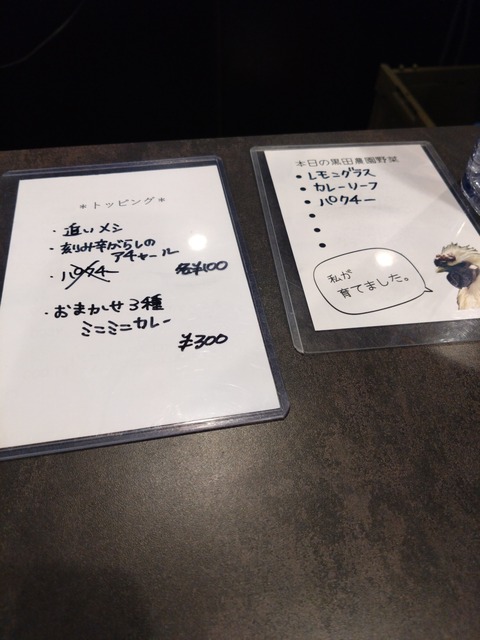 ＊トッピング＊
・追いメシ
・刻み辛がらしの
アチャール
・パクチー
各¥100
・おまかせ3種
ミニミニカレー
¥300
本日の黒田農園野菜
・レモングラス
・カレーリーフ
・パクチー
・
・
・
私が
育てました。